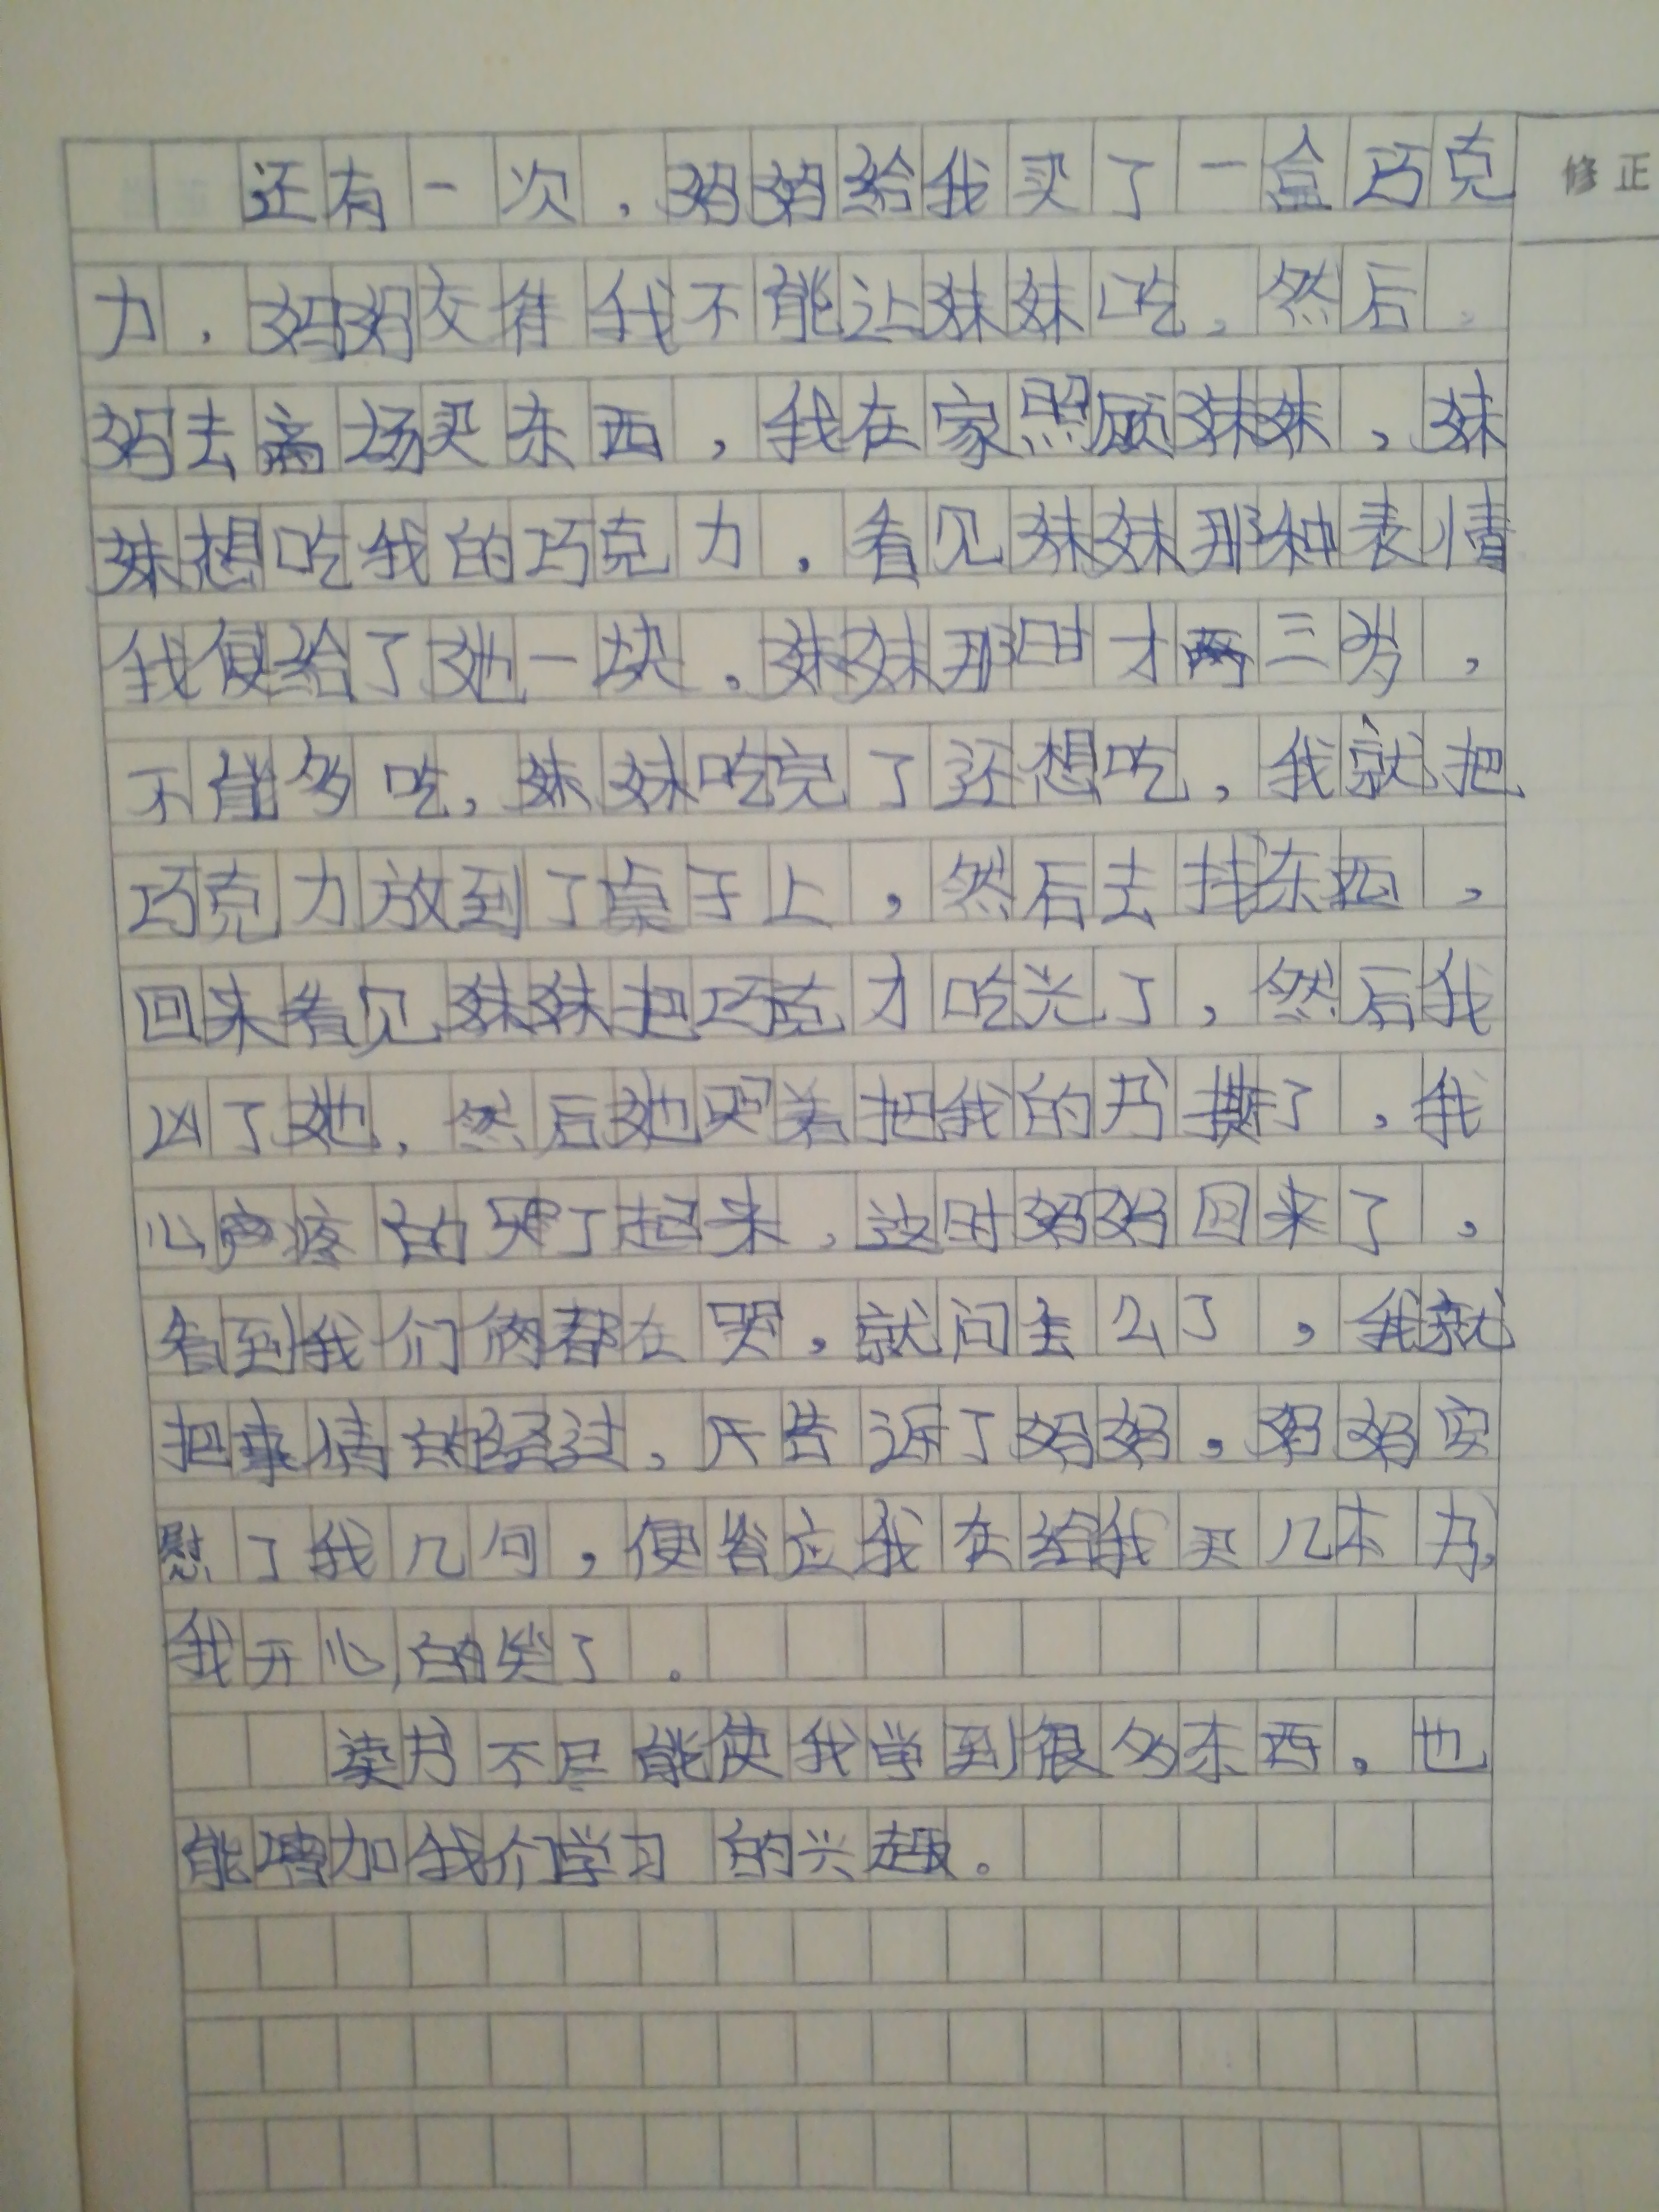 还有一次，妈妈给我买了一盒巧克
修正
力，妈妈交待我不能让妹妹吃，然后，
妈去商场买东西，我在家照顾妹妹，妹
妹想吃我的巧克力，看见妹妹那种表情
我便给了她一块，妹妹那时才两三岁，
不能多吃，妹妹吃完了还想吃，我就把
巧克力放到了桌子上，然后去找东西，
回来看见妹妹把巧克力吃光了，然后我
凶了她，然后她哭着把我的书撕了，我
心疼的哭了起来，这时妈妈回来了，
看到我们俩都在哭，就问怎么了，我就
把事情的经过，告诉了妈妈，妈妈安
慰了我几句，便答应我在给我买几本书，
我开心的笑了。
读书不尽能使我学到很多东西，也
能增加我们学习的兴趣。